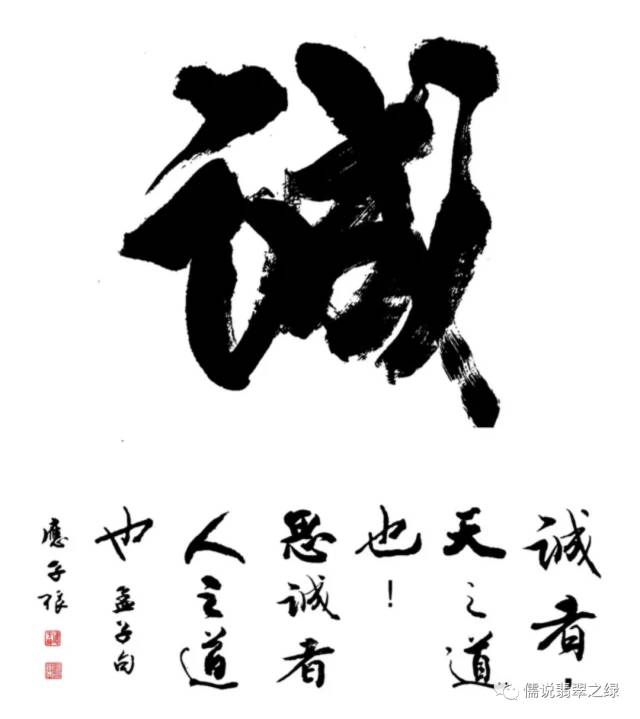 誠
誠者，
天之道
也！
思誠者
人之道
也 孟子句
應子
儒说翡翠之绿